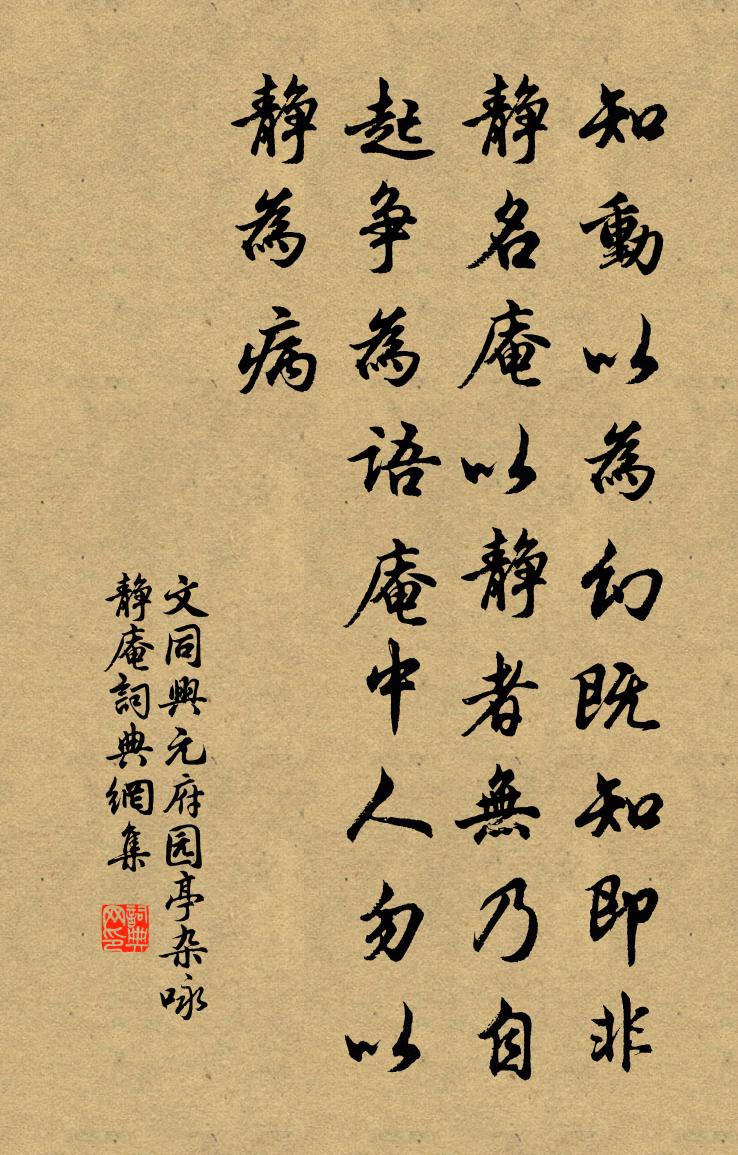 知動以為幻既知即非
静名庵以静者無乃自
起争為語庵中人勿以
静為病
文同興元府园亭杂咏
静庵詞典網集
詞典网印